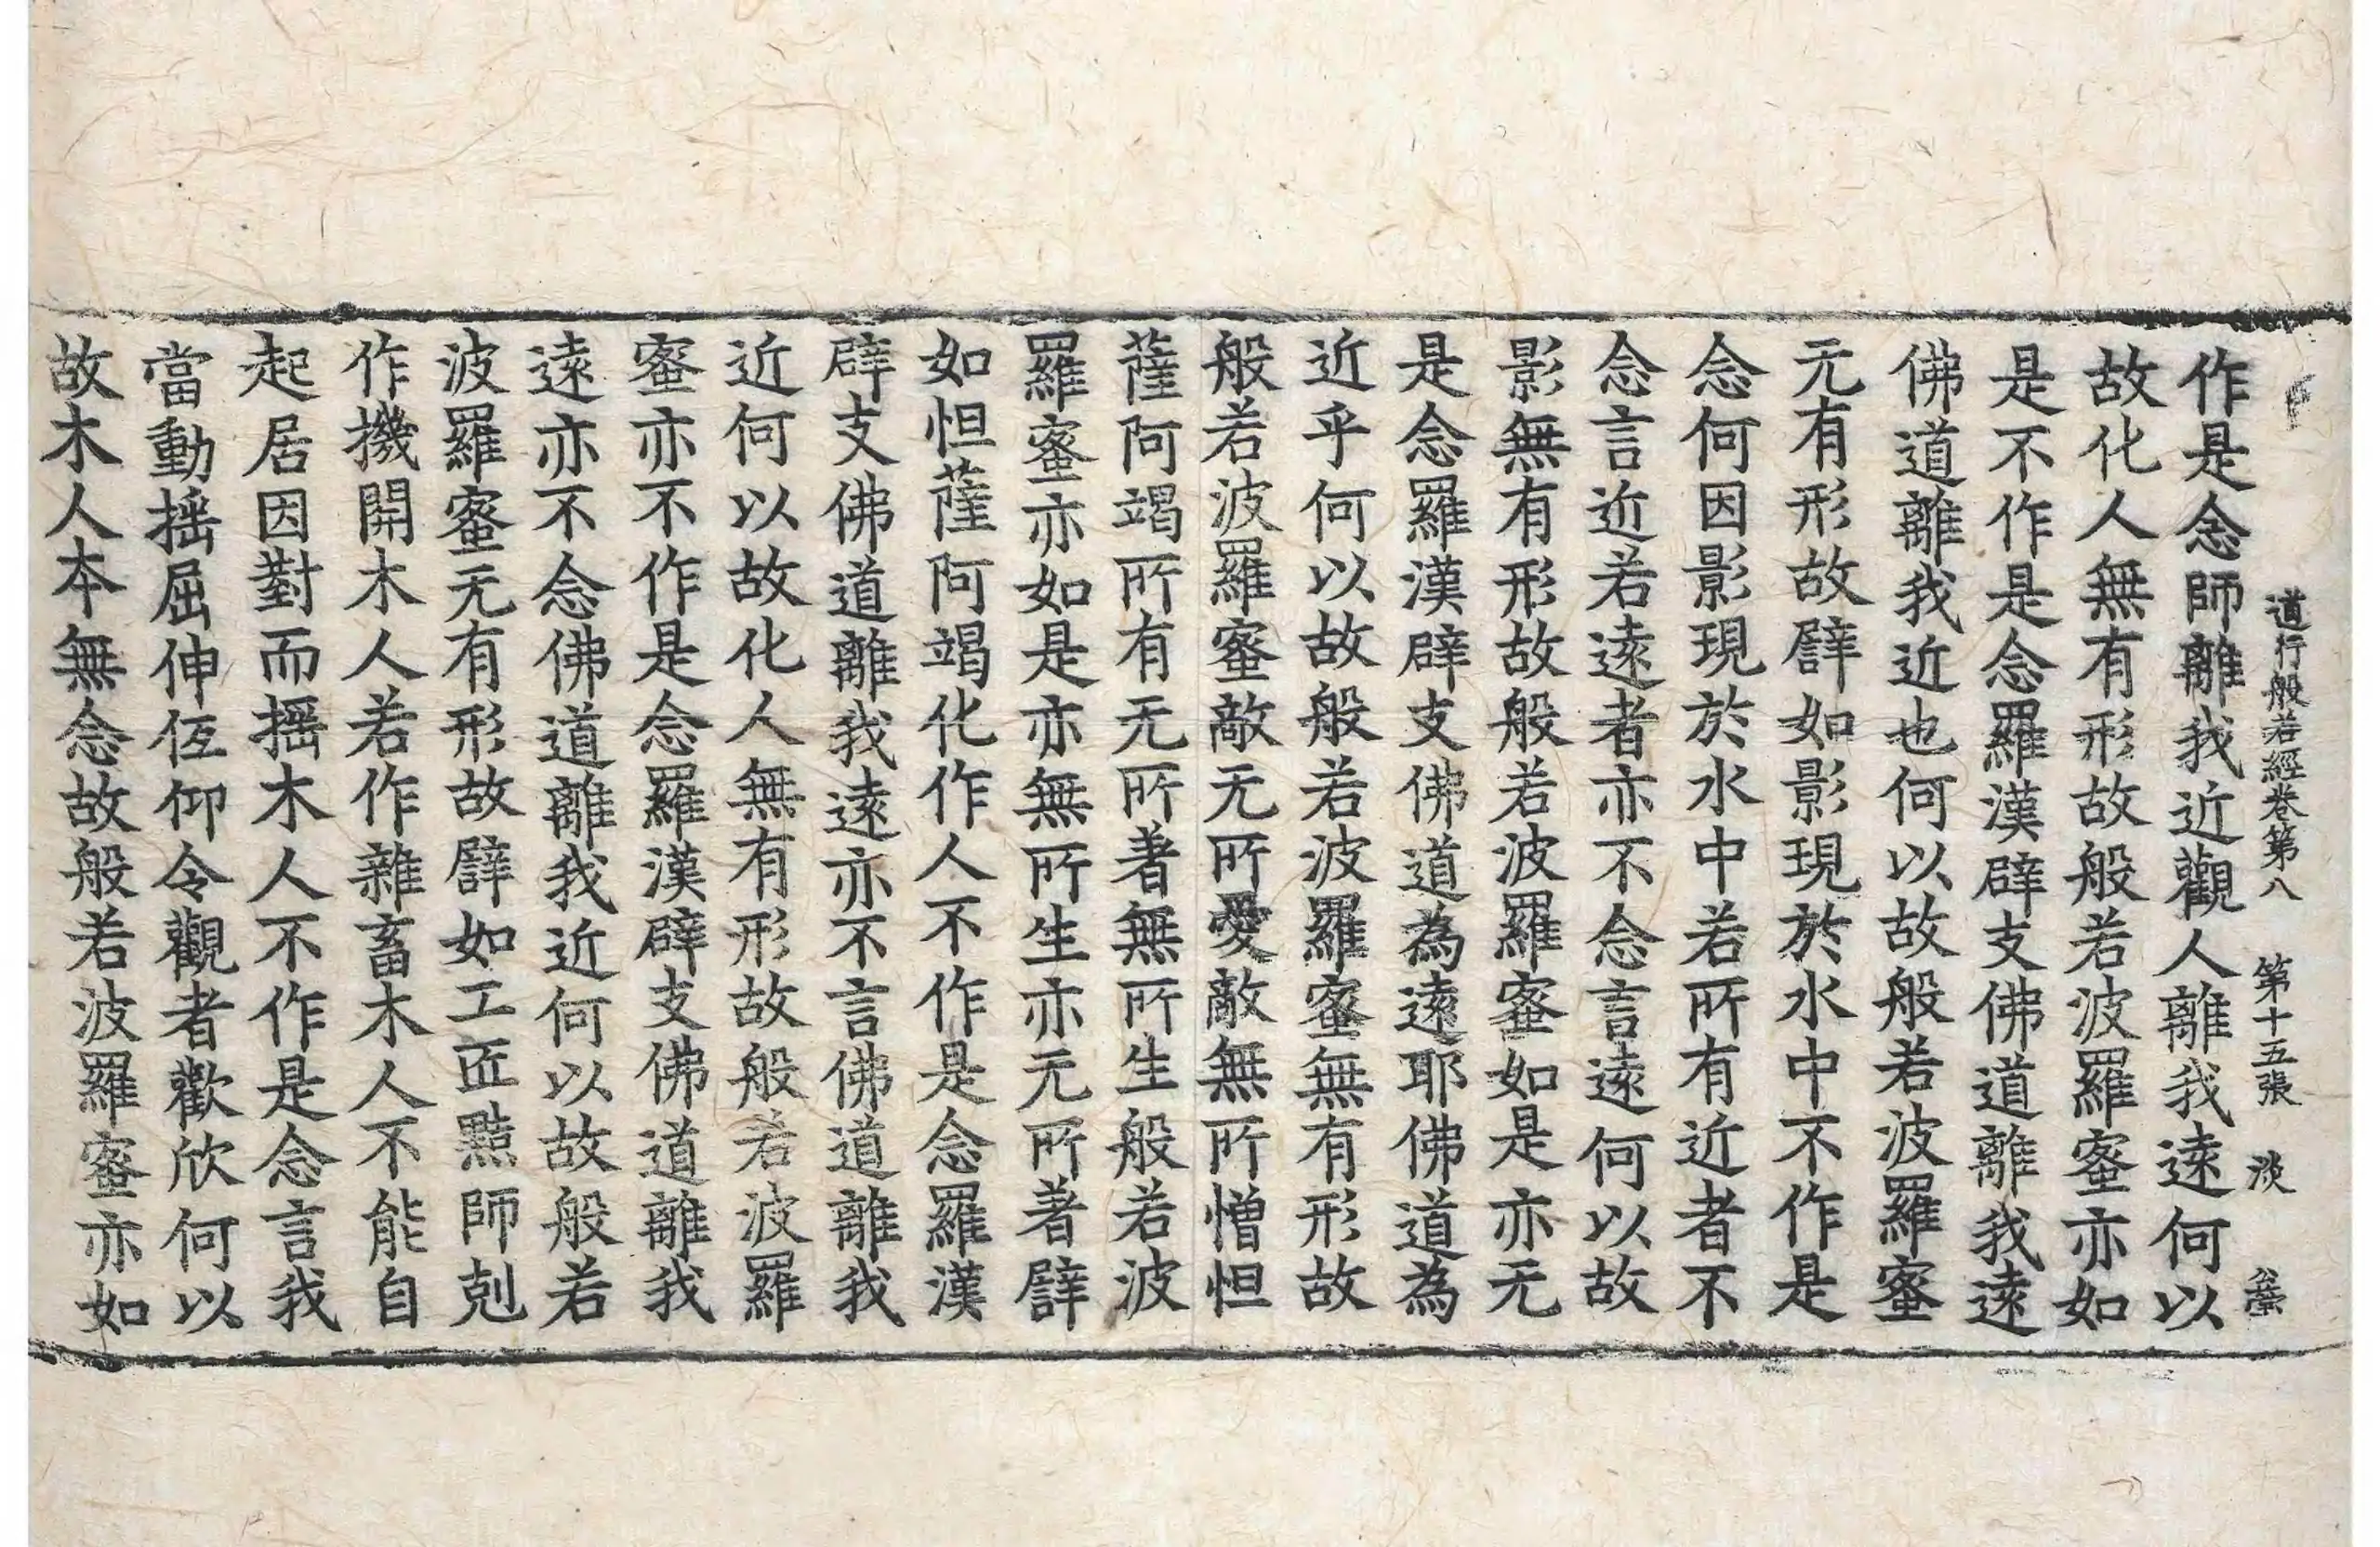 道行般若經卷第八　第十五張　淡
作是念師離我近觀人離我遠何以
故化人無有形故般若波羅蜜亦如
是不作是念羅漢辟支佛道離我遠
佛道離我近也何以故般若波羅蜜
无有形故譬如影現於水中不作是
念何因影現於水中若所有近者不
念言近若遠者亦不念言遠何以故
影無有形故般若波羅蜜如是亦无
是念羅漢辟支佛道為遠耶佛道為
近乎何以故般若波羅蜜無有形故
般若波羅蜜敵无所愛敵無所憎怛
薩阿竭所有无所著無所生般若波
羅蜜亦如是亦無所生亦无所著譬
如怛薩阿竭化作人不作是念羅漢
辟支佛道離我遠亦不言佛道離我
近何以故化人無有形故般若波羅
蜜亦不作是念羅漢辟支佛道離我
遠亦不念佛道離我近何以故般若
波羅蜜无有形故譬如工匠黠師剋
作機開木人若作雜畜木人不能自
起居因對而搖木人不作是念言我
當動搖屈伸仾仰令觀者歡欣何以
故木人本無念故般若波羅蜜亦如